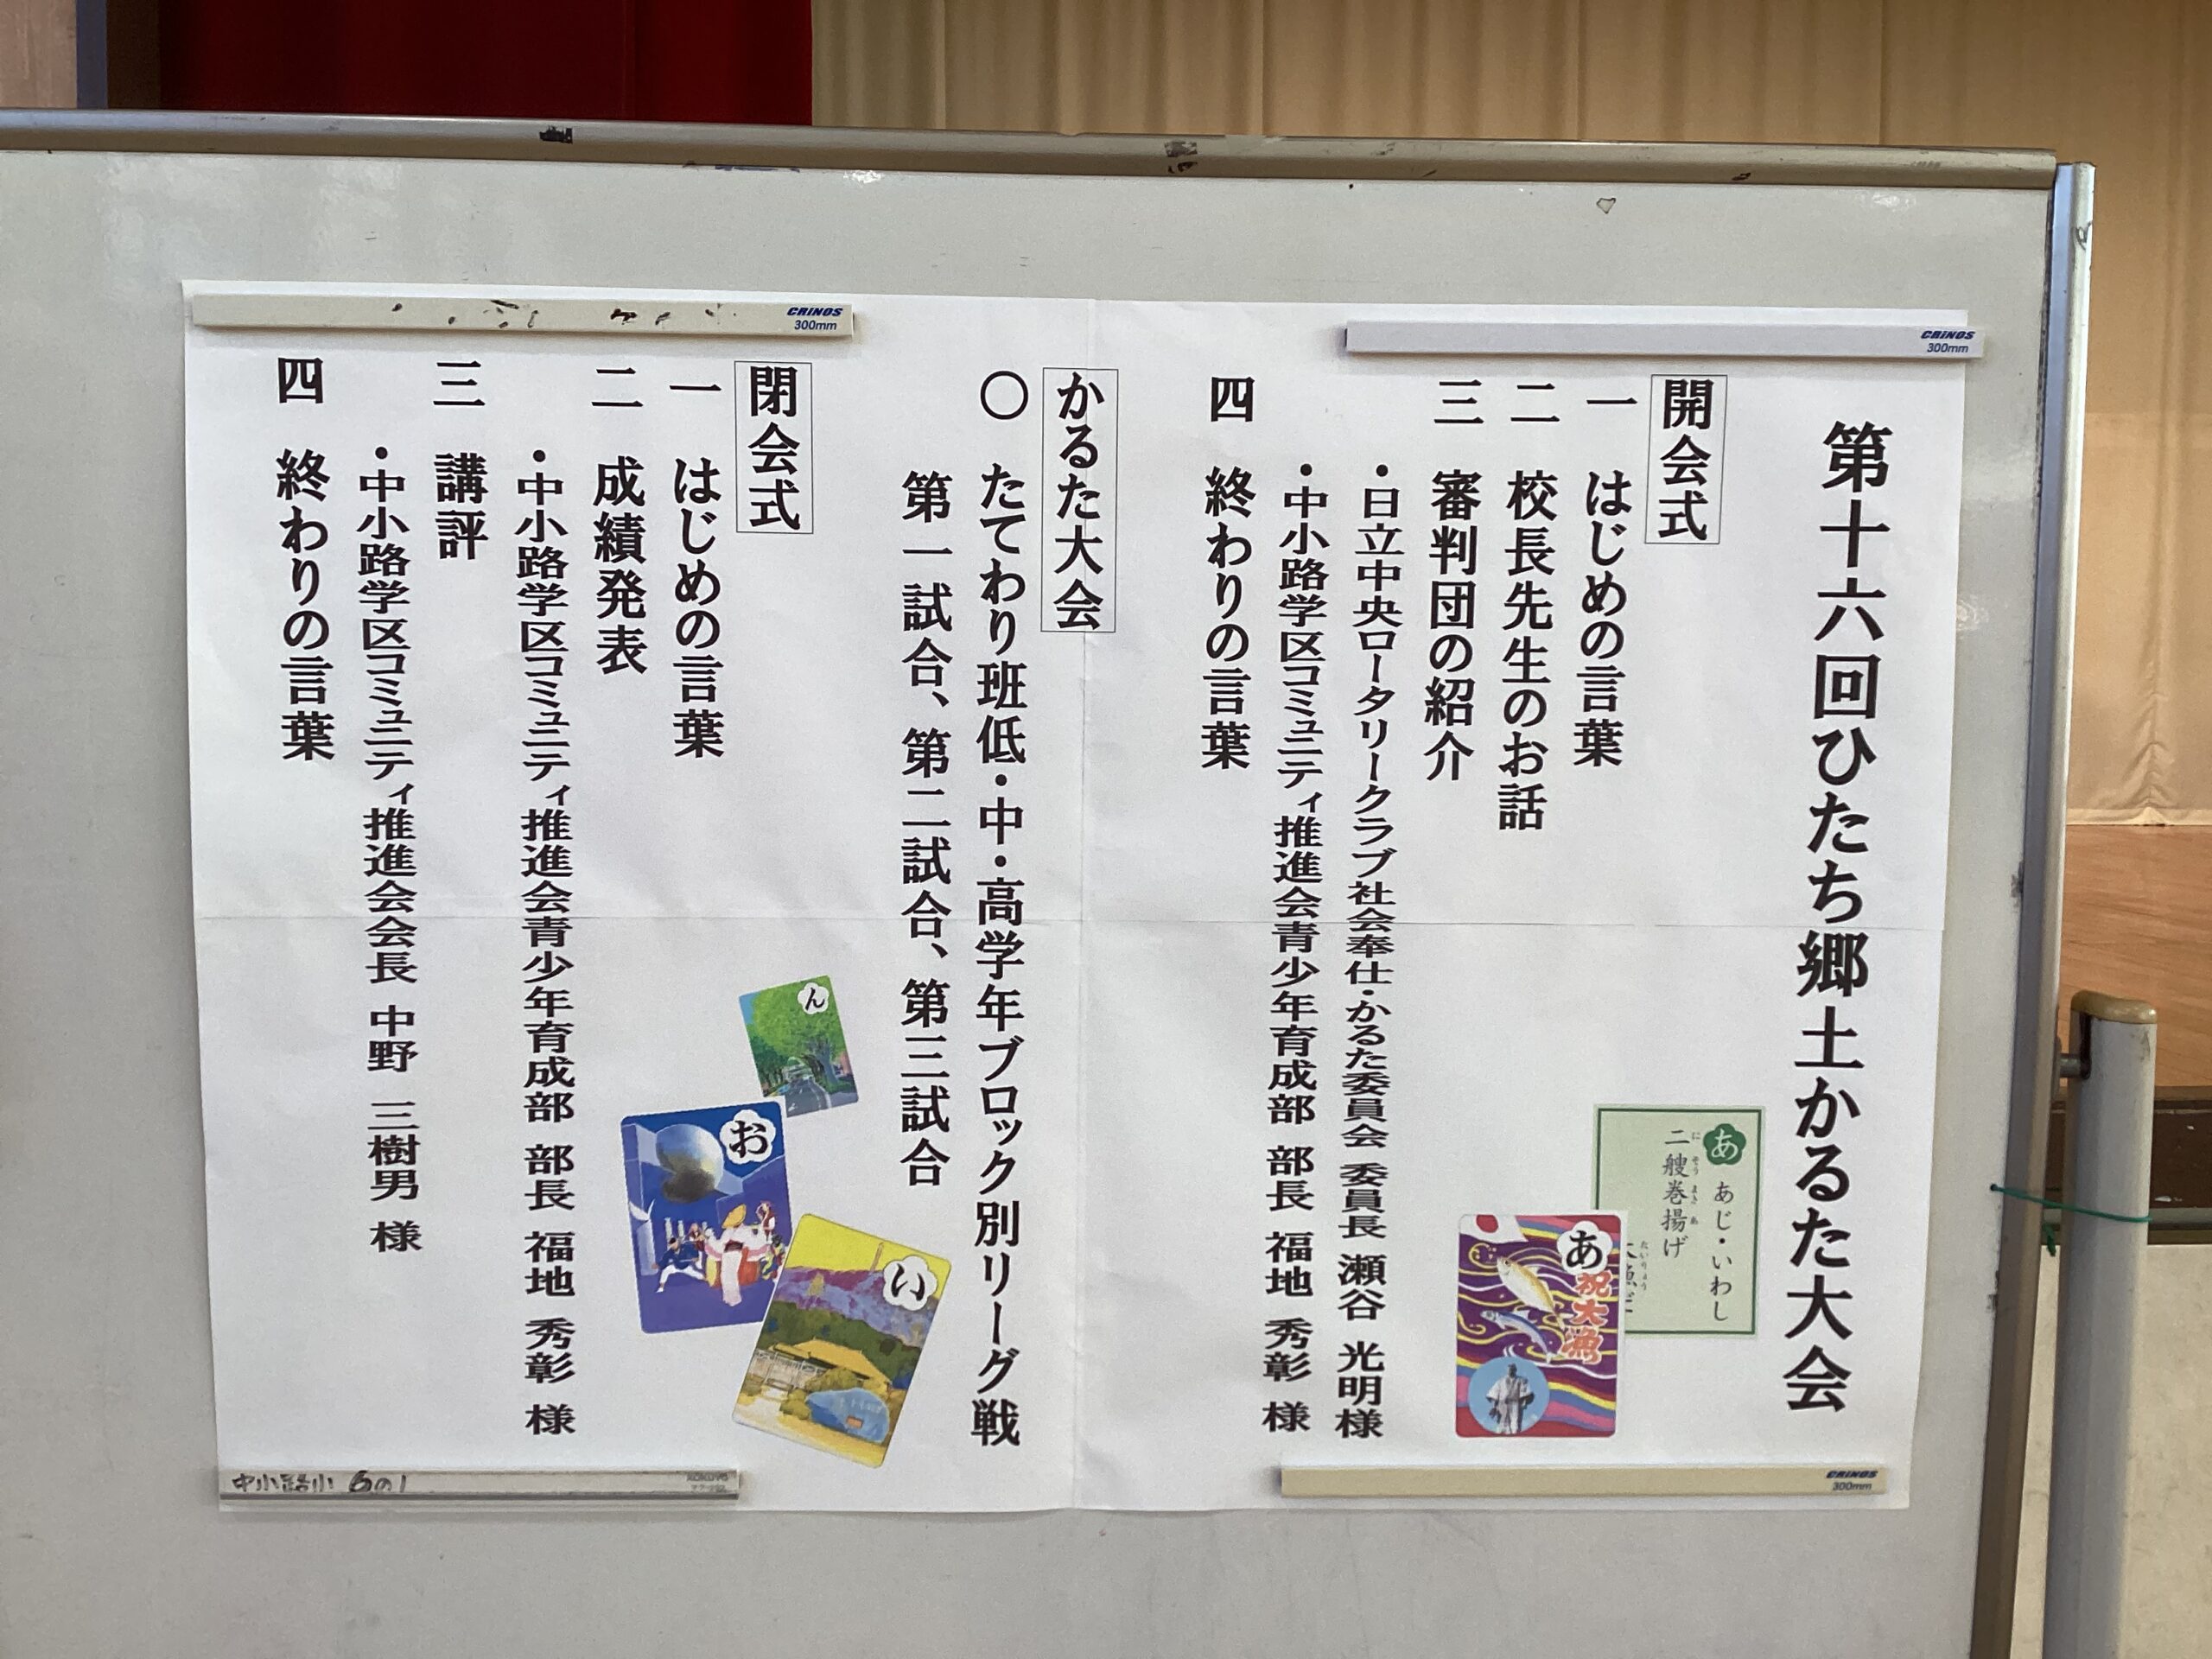 第十六回ひたち郷土かるた大会
開会式
一 はじめの言葉
二 校長先生のお話
三 審判団の紹介
・日立中央ロータリークラブ社会奉仕・かるた委員会 委員長 瀬谷 光明様
・中小路学区コミュニティ推進会青少年育成部 部長 福地 秀彰 様
四 終わりの言葉
かるた大会
〇 たてわり班低・中・高学年ブロック別リーグ戦
第一試合、第二試合、第三試合
閉会式
一 はじめの言葉
二 成績発表
・中小路学区コミュニティ推進会青少年育成部 部長 福地 秀彰 様
三 講評
・中小路学区コミュニティ推進会会長 中野 三樹男 様
四 終わりの言葉
あ
あじ・いわし
二艘巻揚げ
にそうまきあ
たいりょう
あ
祝大漁
ん
お
い
CRINOS
300mm
CRINOS
300mm
CRINOS
300mm
中小路小 6の1
KOKUYO